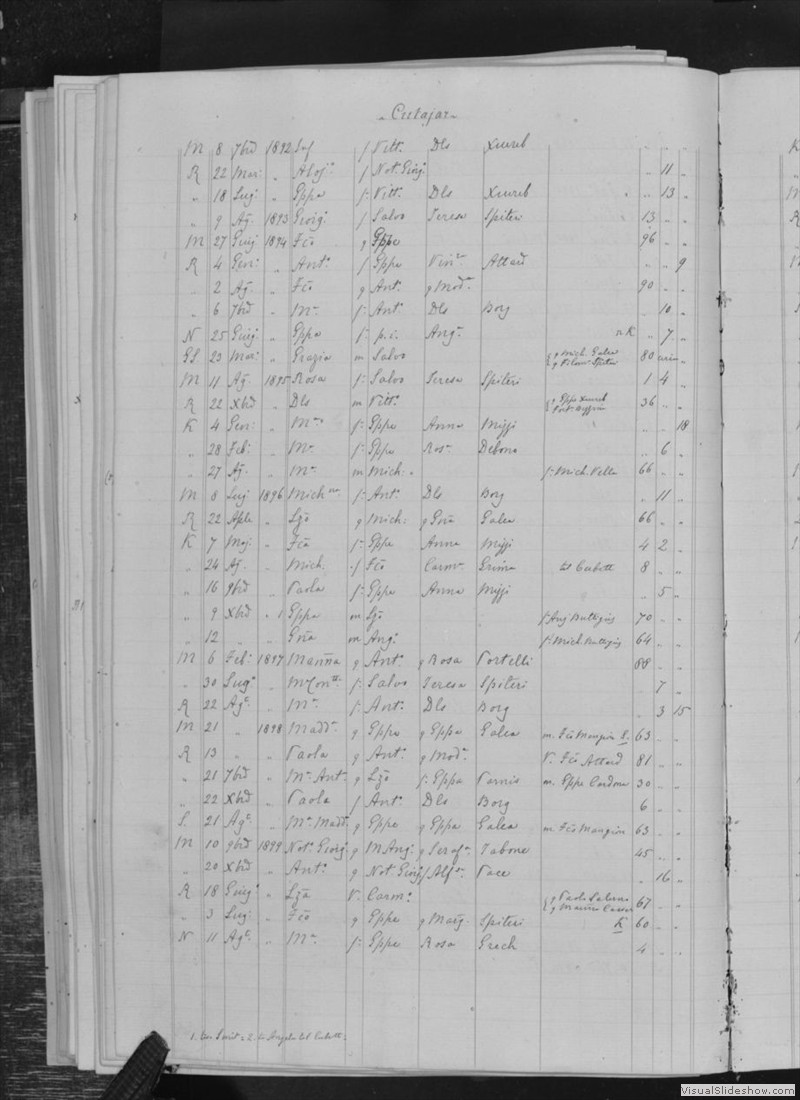 Cutajar
M 8 7brē 1892 f Vitt.ᵃ Dls Xuereb
R 22 Mar: „ Aloj.ᵃ f Not. Giorg: „ 11 „
„ 18 Lug: „ Eppa f. Vitt.ᵃ Dls Xuereb „ 13 „
„ 9 Ag. 1893 Giorg: f Salvo Teresa Spiteri 13 „ „
M 27 Giug: 1894 Fcō g Eppe 96 „ „
R 4 Gen: „ Ant.ᵃ f Eppe Vin.ᵃ Attard „ „ 9
„ 2 Ag. „ Fcō g Ant.ᵒ g Mod.ᵃ 90 „ „
„ 6 7brē „ M.ᵃ f. Ant.ᵒ Dls Borg „ 10 „
N 25 Giug: „ Eppa f. p.i. Ang.ᵃ K „ 7 „
23 Mar: „ Grazia m Salvo g Mich. Galea 80
g Filom.ᵃ Spiteri
M 11 Ag. 1895 Rosa f. Salvo Teresa Spiteri 1 4 „
R 22 Xbrē „ Dls m Vitt.ᵒ g Eppe Xuereb 36 „ „
K 4 Gen: „ M.ᵃ f. Eppe Anna Miggi „ „ 18
„ 28 Feb: „ M.ᵃ f. Eppe Ros.ᵃ Debono „ 6 „
„ 27 Ag. „ M.ᵃ m Mich. f. Mich. Vella 66 „ „
M 8 Lug: 1896 Mich. f. Ant.ᵒ Dls Borg „ 11 „
R 22 Aple „ Lzō g Mich: g Gña Galea 66 „ „
K 7 Mag: „ Fcā f. Eppe Anna Miggi 4 2 „
„ 24 Ag. „ Mich. f Fcō Carm.ᵃ Grima 8 „ „
„ 16 9brē „ Paola f. Eppe Anna Miggi „ 5 „
„ 9 Xbrē „ Eppa m Lzō f. Ang. Buttigieg 70 „ „
„ 12 „ „ Gña m Ang: f. Mich. Buttigieg 64 „ „
M 6 Feb: 1897 Marīna g Ant.ᵒ g Rosa Portelli 88 „ „
„ 30 Lug.ᵒ „ f. Salvo Teresa Spiteri „ 7 „
R 22 Ag.ᵒ „ M.ᵃ f. Ant.ᵒ Dls Borg „ 3 15
M 21 „ 1898 Madd.ᵃ g Eppe g Eppa Galea m. Fcō Mangion S. 63 „ „
R 13 „ „ Paola g Ant.ᵒ g Mod.ᵃ V. Fcō Attard 81 „ „
„ 21 7brē „ M.ᵃ Ant.ᵃ g Lzō f. Eppa Farnis m. Eppe Cardona 30 „ „
„ 22 Xbrē „ Paola f Ant.ᵒ Dls Borg 6 „ „
S. 21 Ag.ᵒ „ M.ᵃ Madd.ᵃ g Eppe g Eppa Galea m. Fcō Mangion 63 „ „
M 10 9brē 1899 Not. Giorg: g M Ang: g Seraf.ᵃ Tabone 45 „ „
„ 20 Xbrē „ Ant.ᵒ g Not. Giorg: f Alf.ᵃ Pace „ 16 „
R 18 Giug.ᵒ „ Lzā V. Carm.ᵒ g Paolo 67 „ „
„ 3 Lug: „ Fcō g Eppe g Marg. Spiteri K 60 „ „
N 11 Ag.ᵒ „ M.ᵃ f. Eppe Rosa Grech 4 „ „
VisualSlideshow.com